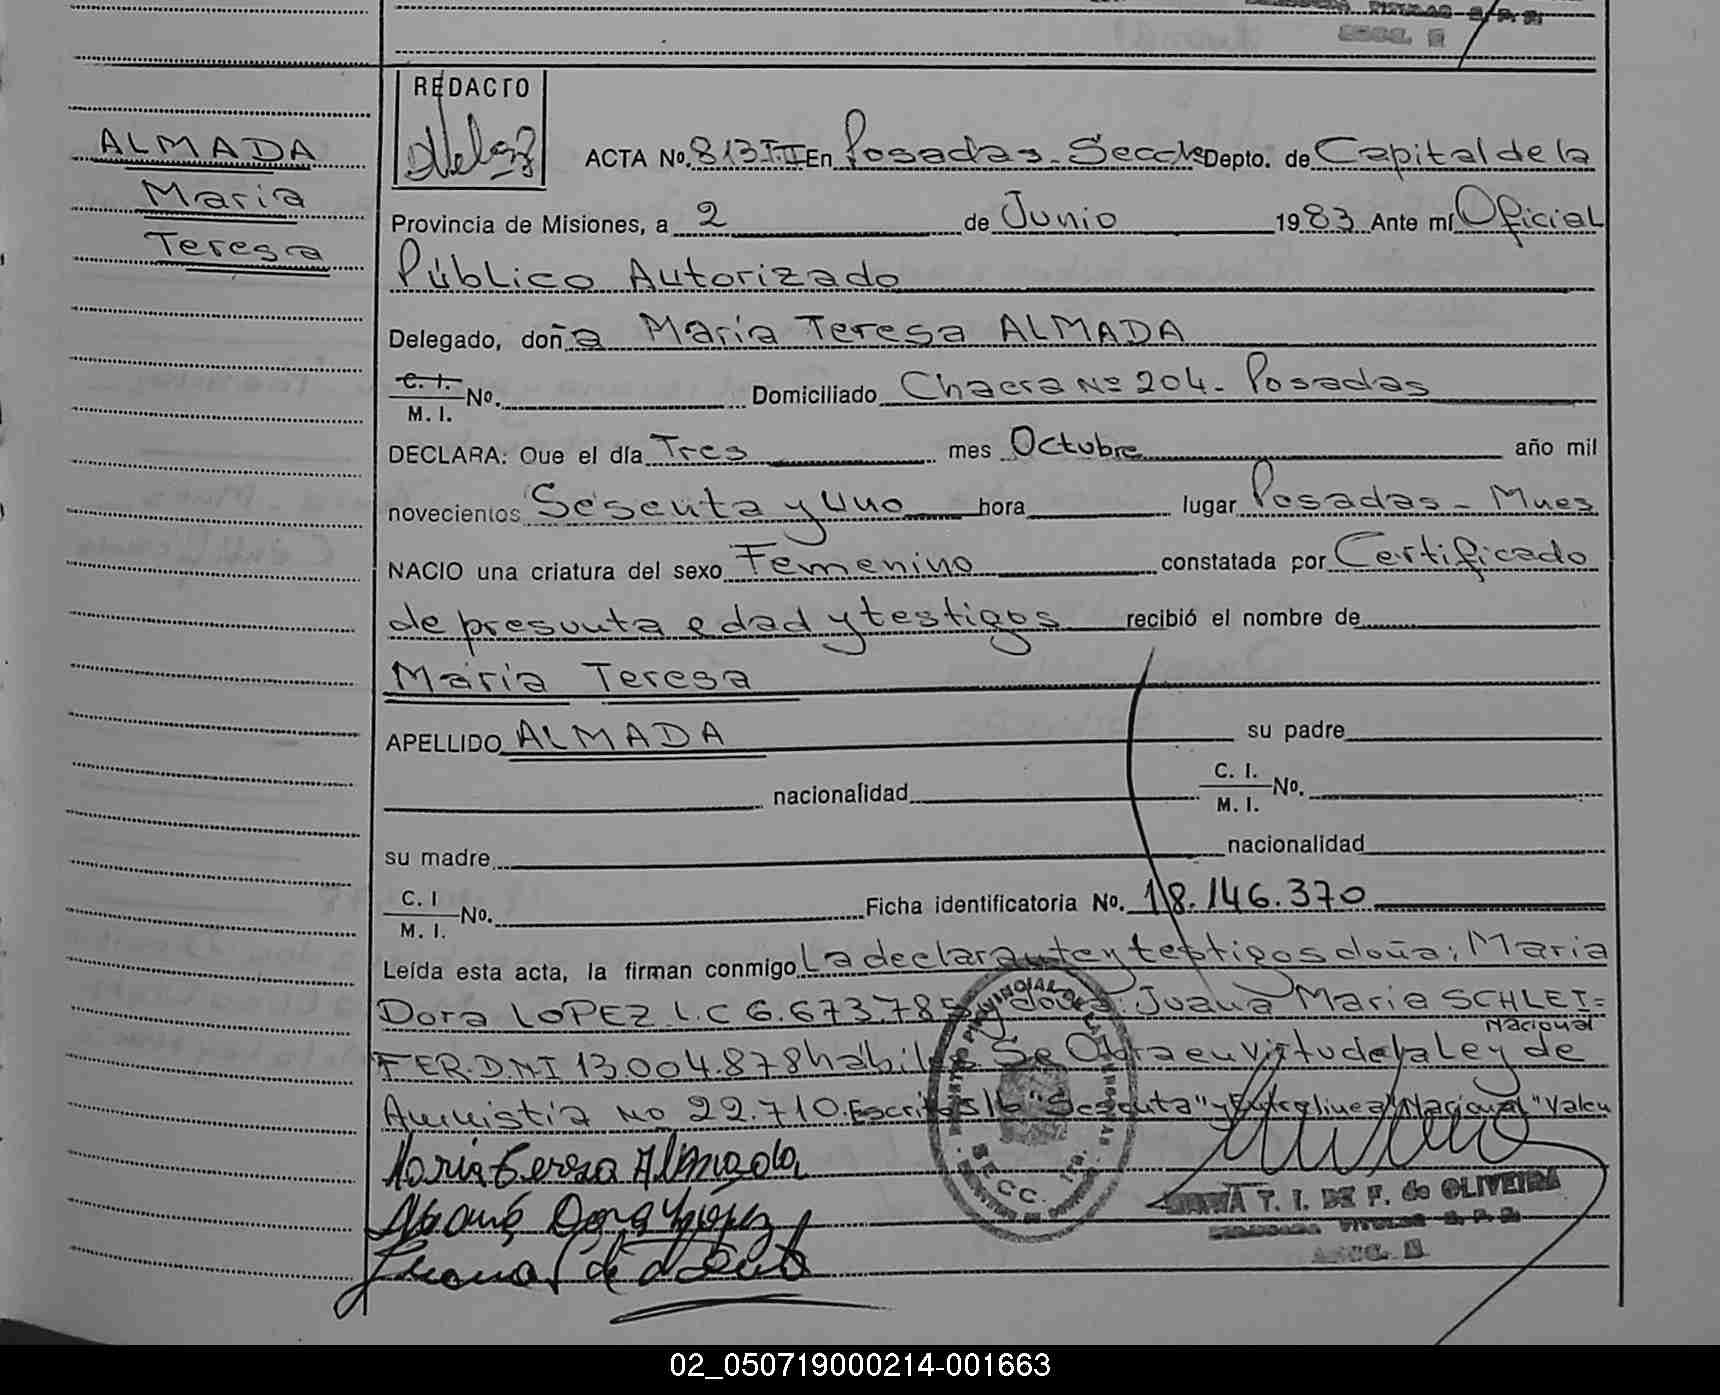 REDACTO
ALMADA
Maria
Teresa
ACTA No. 813 T.II En Posadas - Secc 1a Depto. de Capital de la
Provincia de Misiones, a 2 de Junio 1983 Ante mí Oficial
Público Autorizado
Delegado, doña Maria Teresa ALMADA
C. I.
M. I. No. Domiciliado Chacra Nº 204 - Posadas
DECLARA: Que el día Tres mes Octubre año mil
novecientos Sesenta y Uno hora lugar Posadas - Mnes
NACIO una criatura del sexo Femenino constatada por Certificado
de presunta edad y testigos recibió el nombre de
Maria Teresa
APELLIDO ALMADA su padre
nacionalidad C. I.
M. I. No.
su madre nacionalidad
C. I
M. I. No. Ficha identificatoria No. 18.146.370
Leída esta acta, la firman conmigo La declarante y testigos doña: Maria
Dora LOPEZ L.C 6.673.785 y doña: Juana Maria SCHLEI=
Nacional
FER. D.N.I 13.004.878 habiles Se Obra en virtud de la Ley de
Amnistia No 22.710. Escritos/b "Sesenta" y Entrelinea "Nacional" Valen
Maria Teresa Almada
Dora Lopez
SECC. 1ra.
T. I. DE F. de OLIVEIRA
02_050719000214-001663